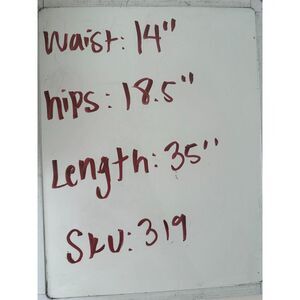 Waist: 14"
hips: 18.5"
Length: 35"
SKU: 319